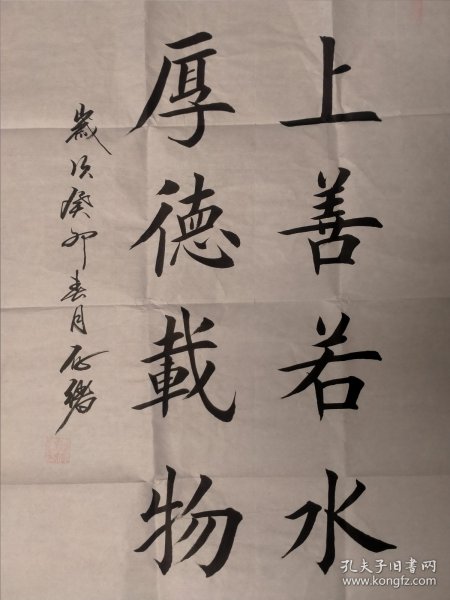 上善若水
厚德載物
歲次癸卯春月
孔夫子旧书网
www.kongfz.com